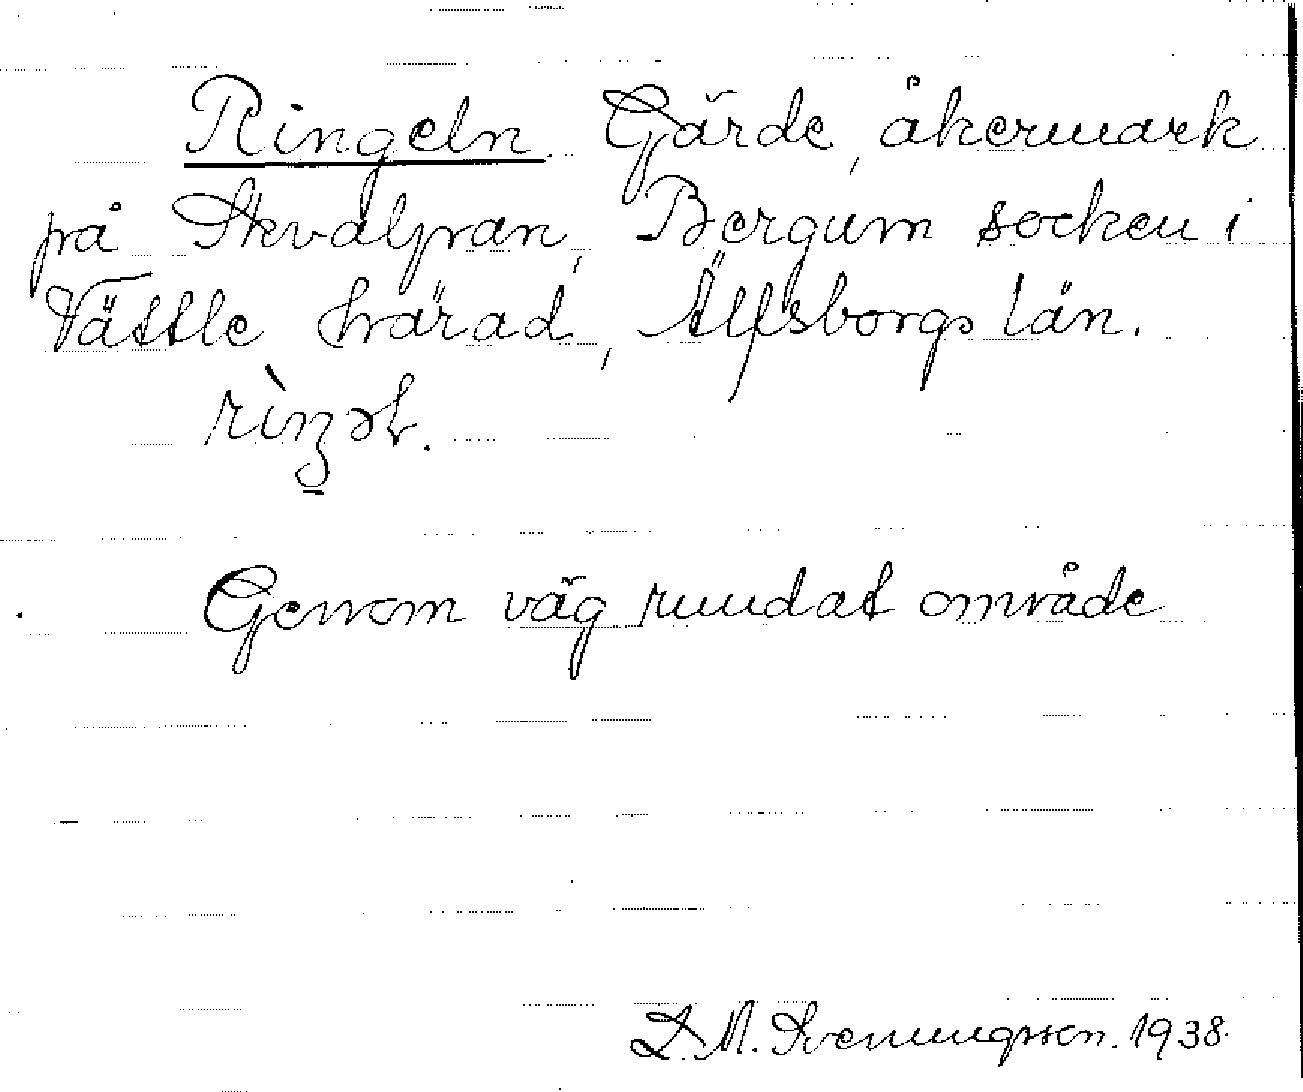 Ringeln Gärde, åkermark
på Skvalpan, Bergum socken i
Vättle härad, Älfsborgs län.
Genom väg rundat område
S. M. Svenungsson. 1938.